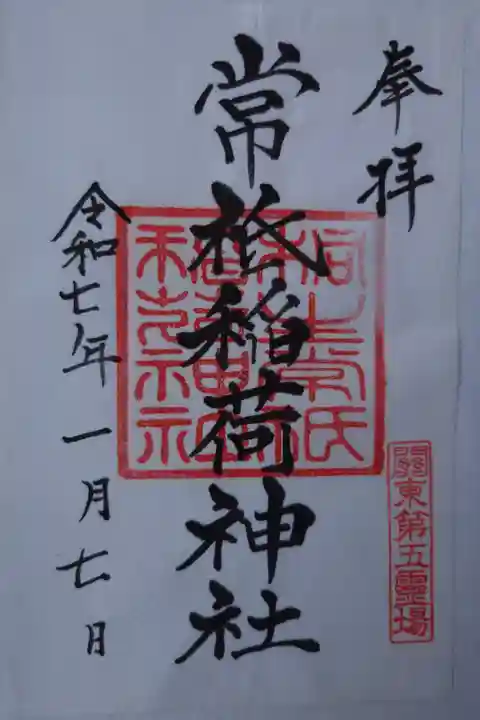 奉拝
常祇稲荷神社
令和七年一月七日
關東第五靈場